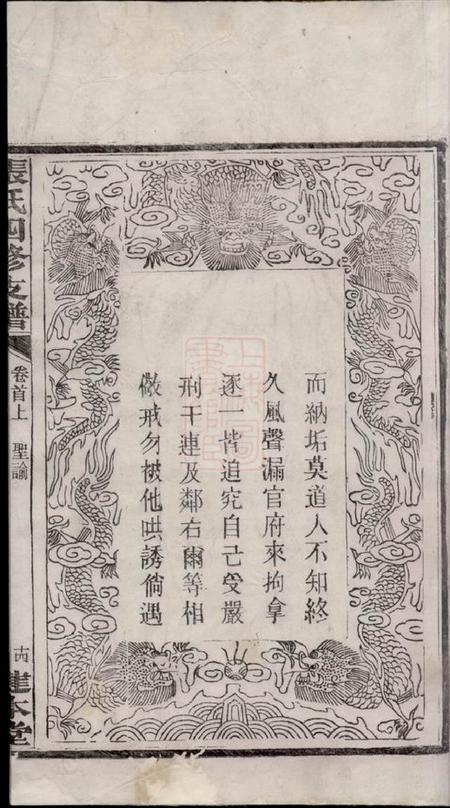 而納垢莫道人不知終
久風聲漏官府來拘拿
逐一皆追究自己受嚴
刑干連及鄰右爾等相
儆戒勿被他哄誘倘遇
張氏四修支譜
卷首上
聖諭
建本堂